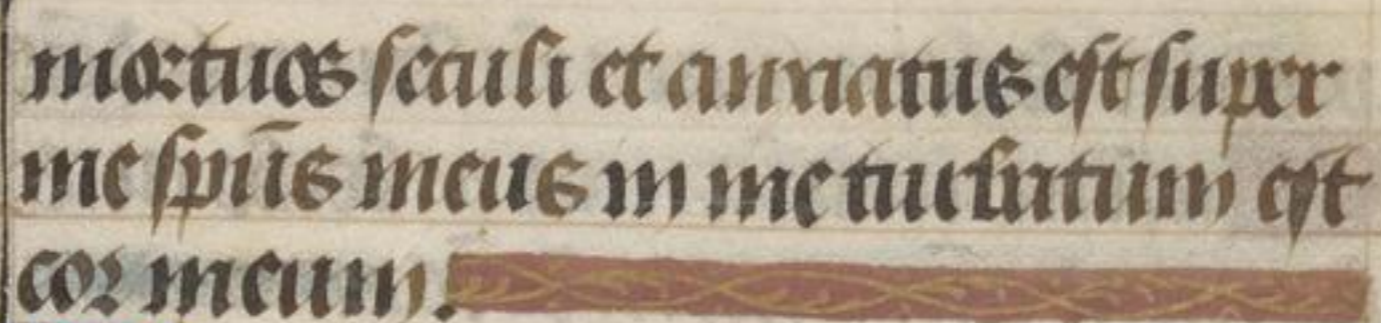 mortuos seculi et anxiatus est super
me spūs meus in me turbatum est
cor meum.